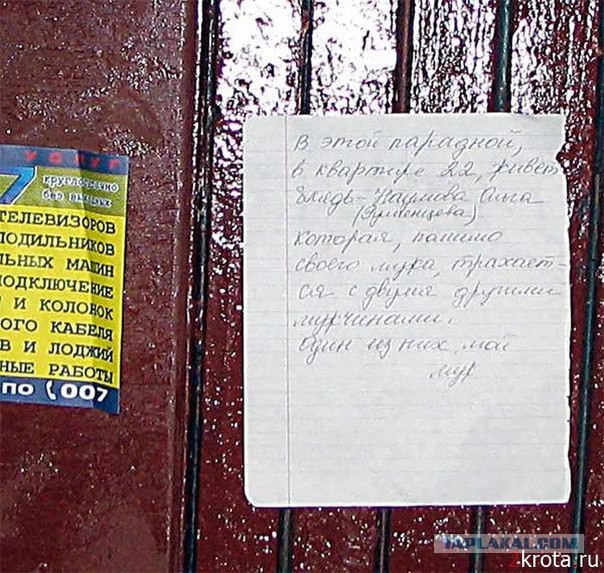 УСЛУГ
7 круглосуточно
без выходных
ТЕЛЕВИЗОРОВ
ЛОДИЛЬНИКОВ
ЛЬНЫХ МАШИН
ПОДКЛЮЧЕНИЕ
Т И КОЛОНОК
ОГО КАБЕЛЯ
В И ЛОДЖИЙ
НЫЕ РАБОТЫ
ПО 007
В этой парадной,
в квартире 22, живет
блядь - Наумова Ольга
(Румянцева)
которая, помимо
своего мужа, трахает-
ся с двумя другими
мужчинами.
Один из них, мой
муж
YAPLAKAL.COM
krota.ru